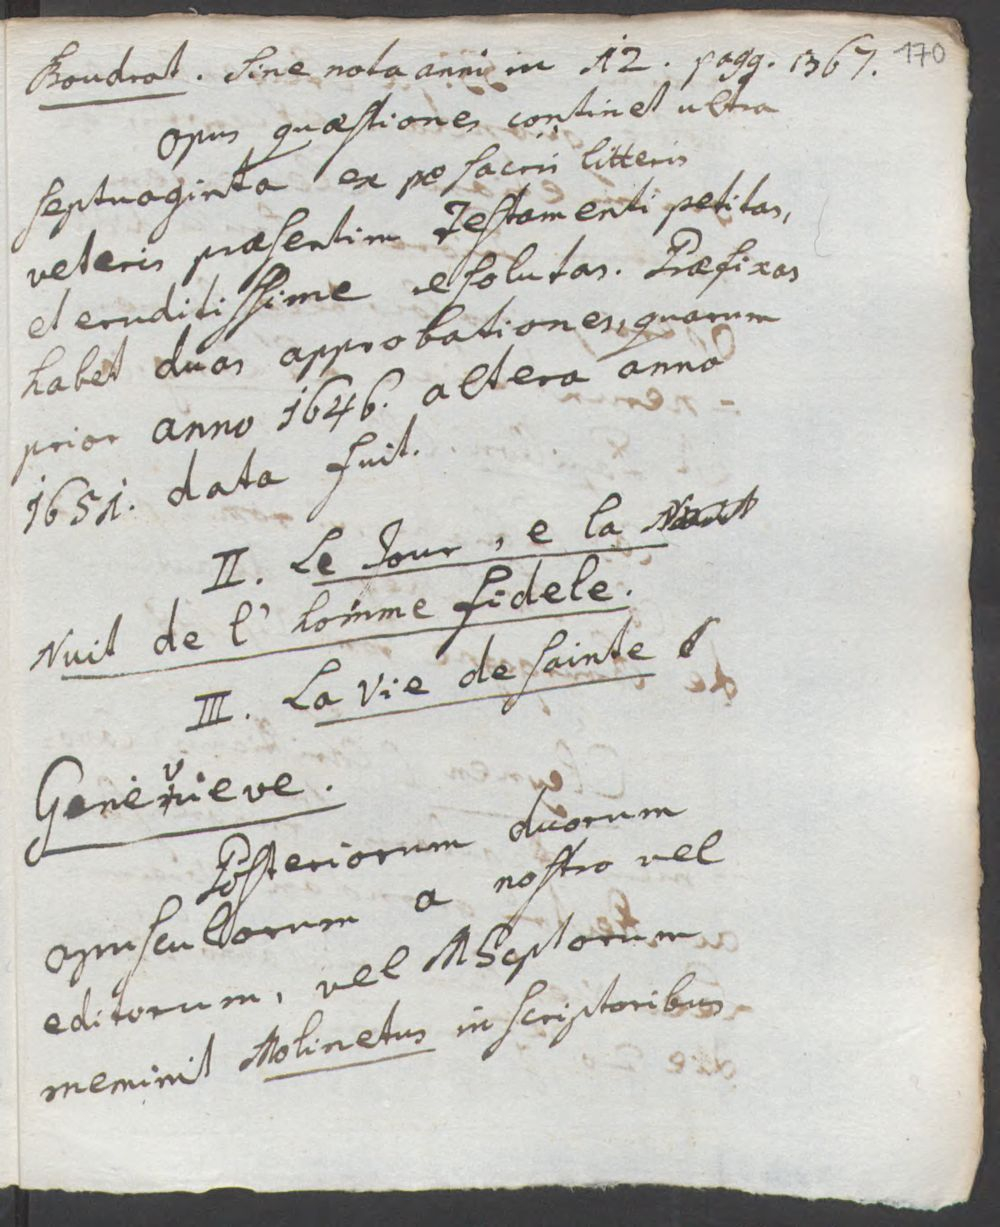 Boudrot. Sine nota anni in 12. pagg. 1367. 170
Opus quæstiones continet ultra
septuaginta ex sacris litteris
veteris præsertim Testamenti petitas,
et eruditissime esolutas. Præfixas
habet duas approbationes, quarum
prior anno 1646. altera anno
1651. data fuit.
II. Le Jour, e la
Nuit de l'homme fidele.
III. La Vie de Sainte
Genevieve.
Posteriorum duorum
opusculorum a nostro vel
editorum, vel MSсptorum
meminit Molinetus in scriptoribus